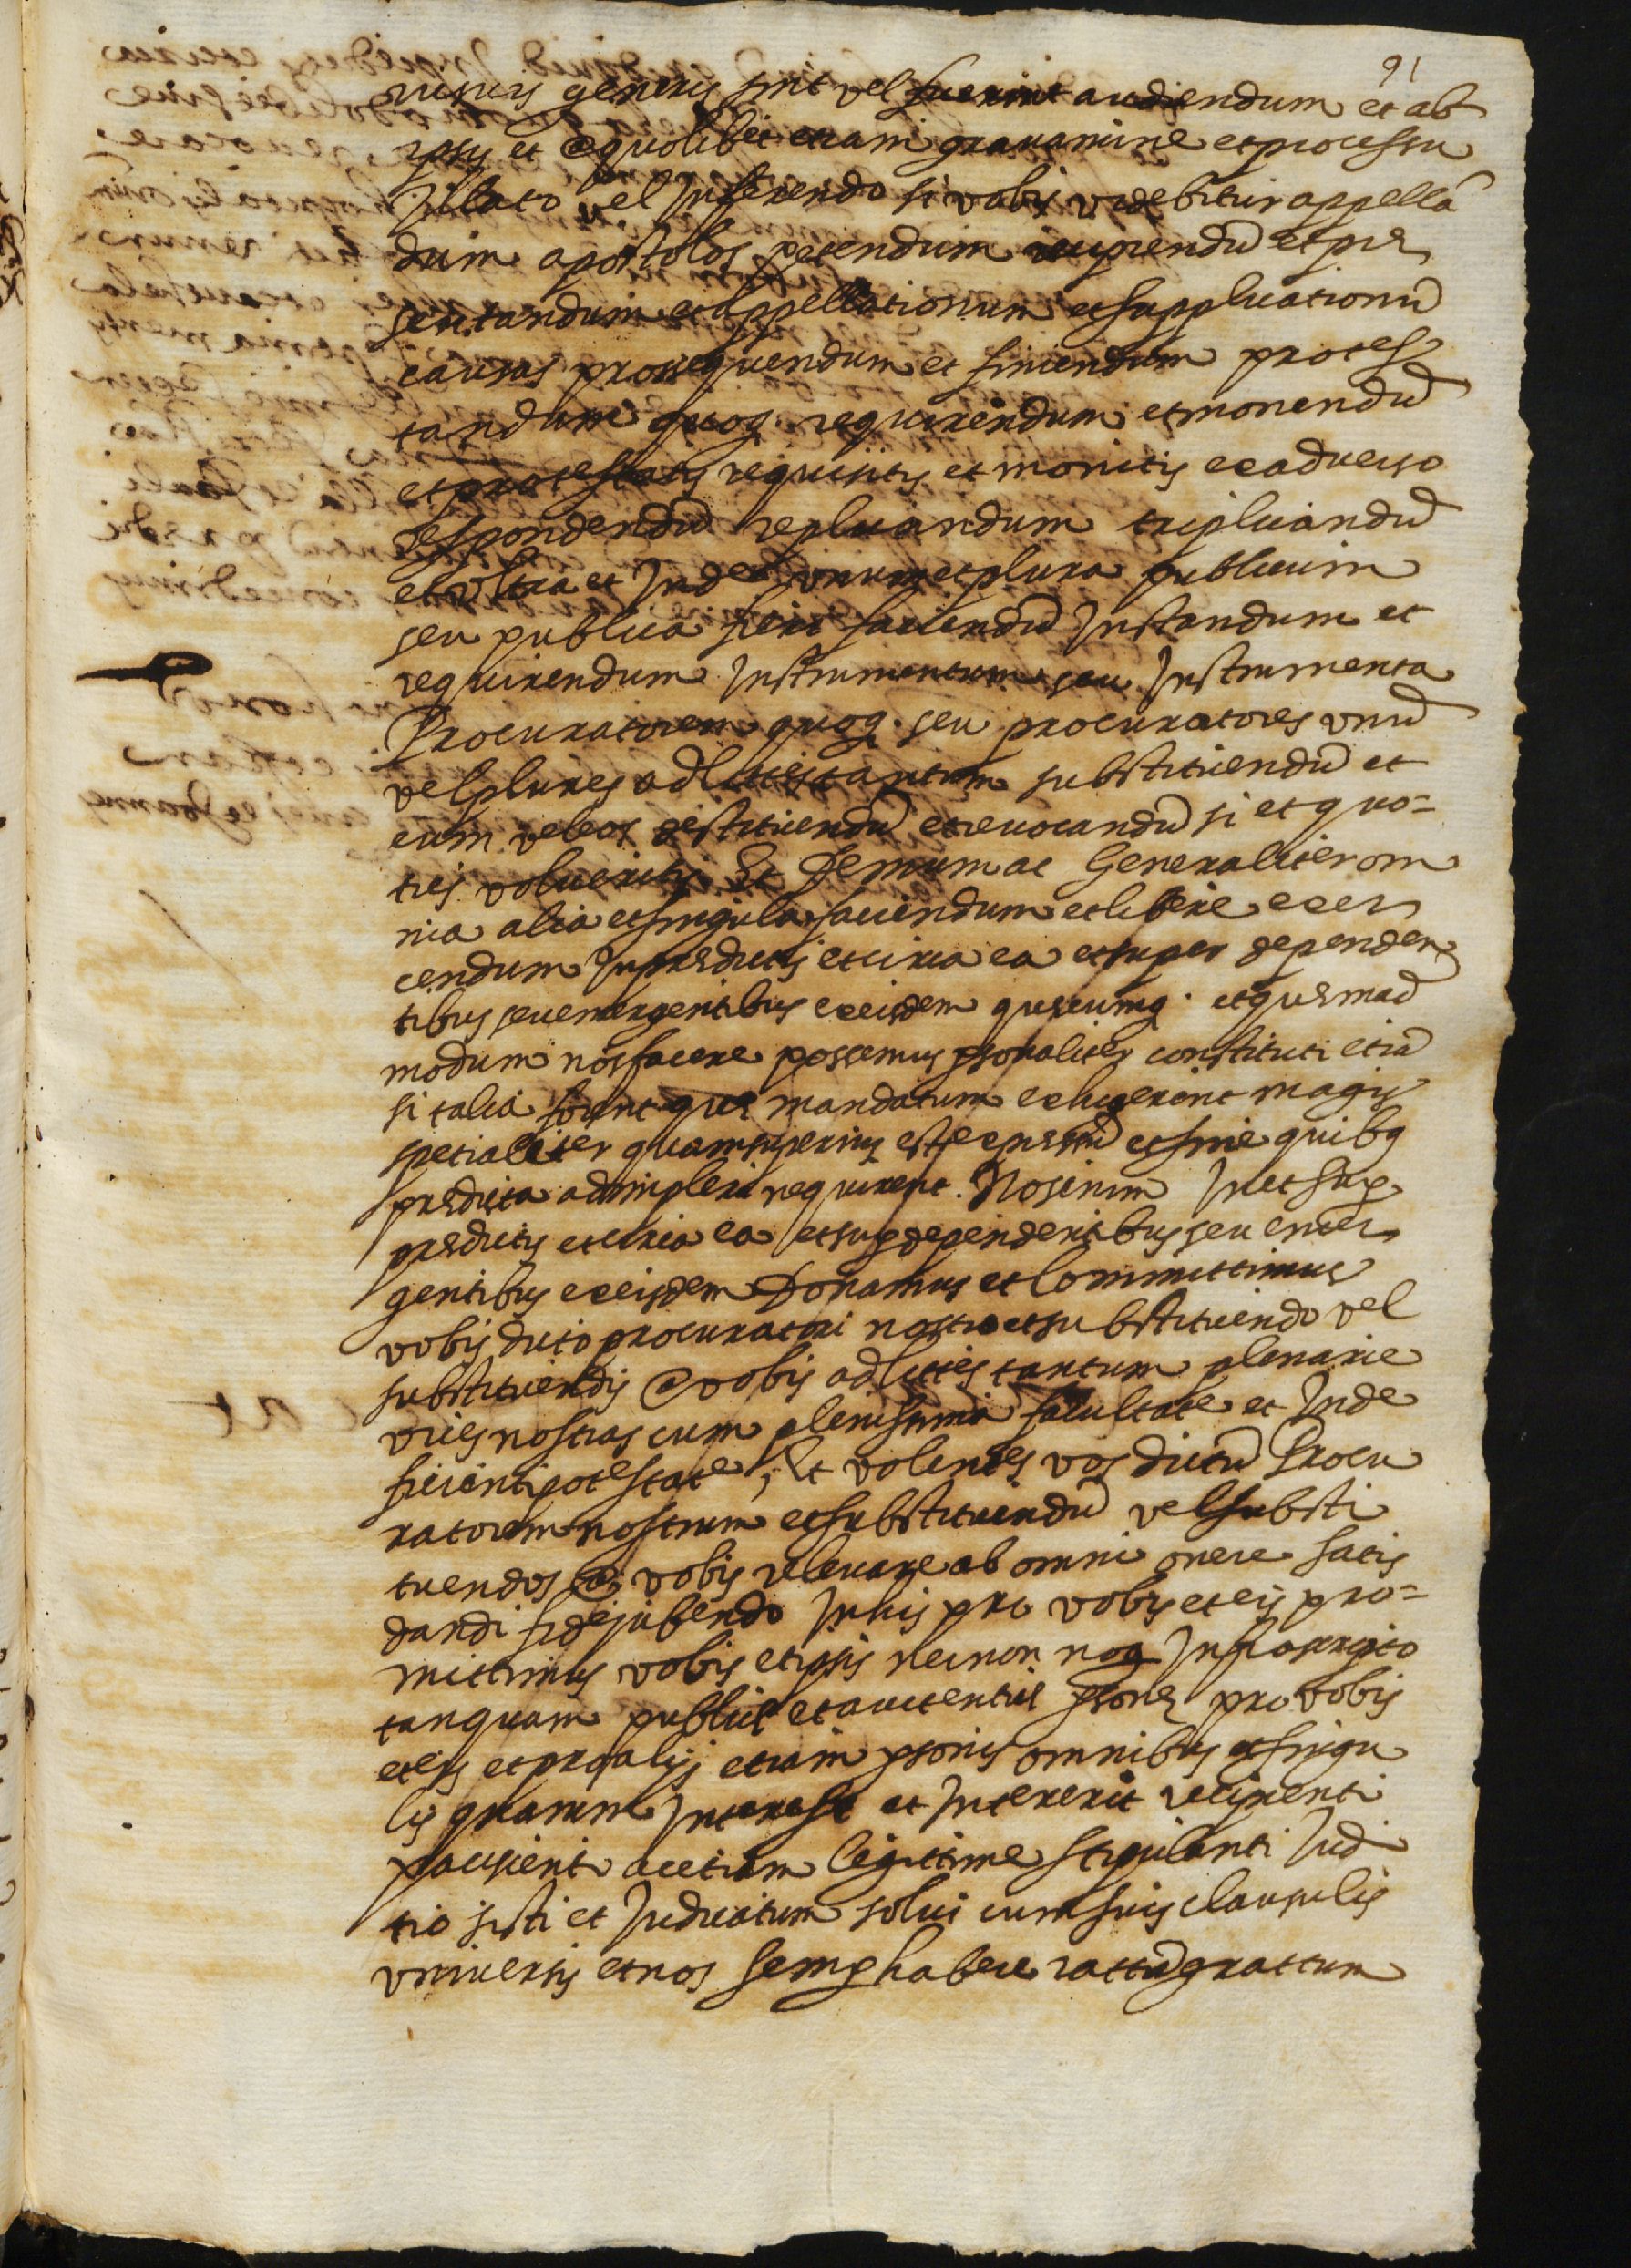 91
cuiusuis generis sint vel fuerint audiendum et ab
ipsis et a quolibet etiam grauamine et processu
Illato vel Inferendo si vobis videbitur appellā
dum apostolos petendum recipiendū et præ
sentandum et appellationum et supplicationū
causas prossequendum et finiendum protes
tandum quoq. requirendum et monendū
et protestatis requisitis et monitis ex aduerso
respondendū replicandum triplicandū
et vltra et Inde vnum et plura publicum
seu publica fieri faciendū Instandum et
requirendum Instrumentum seu Instrumenta
Procuratorem quoq. seu procuratores vnū
vel plures ad lites tantum substituendū et
eum vel eos destituendū et reuocandū si et quo=
ties volueritis Et Demum ac Generaliter om
nia alia et singula faciendum et libere exer
cendum In prædictis et circa ea et super dependen
tibus seu emergentibus ex eisdem quæcumq. et quæmad
modum nos facere possemus psonaliter constituti etiā
si talia forent quæ mandatum exhigerint magis
spetialiter quam superius est expræssū et sine quibq
prædicta adimpleri nequirent. Nos enim In et sup
prædictis et circa ea et sup dependentibus seu emer
gentibus ex eisdem Donamus et Committimus
vobis dicto procuratori nostro et substituendo vel
substituendis a vobis ad lites tantum plenarie
vices nostras cum plenissima facultate et Inde
ficienti potestate, Et volentes vos dictū Procu
ratorem nostrum et substituendū vel substi
tuendos a vobis releuare ab omni onere satis
dandi fidejubendo In his pro vobis et eis pro=
mittimus vobis et ipsis necnon noq Infrascripto
tanquam publicæ et auctenticæ psonæ pro vobis
et eis et pro alijs etiam psonis omnibus et singu
lis quarum Interest et Intererit recipienti
paciscenti ac etiam legittime stipulanti Judi
tio sisti et Judicatum solui cum suis clausulis
vniuersis et nos semp habere rattū grattum